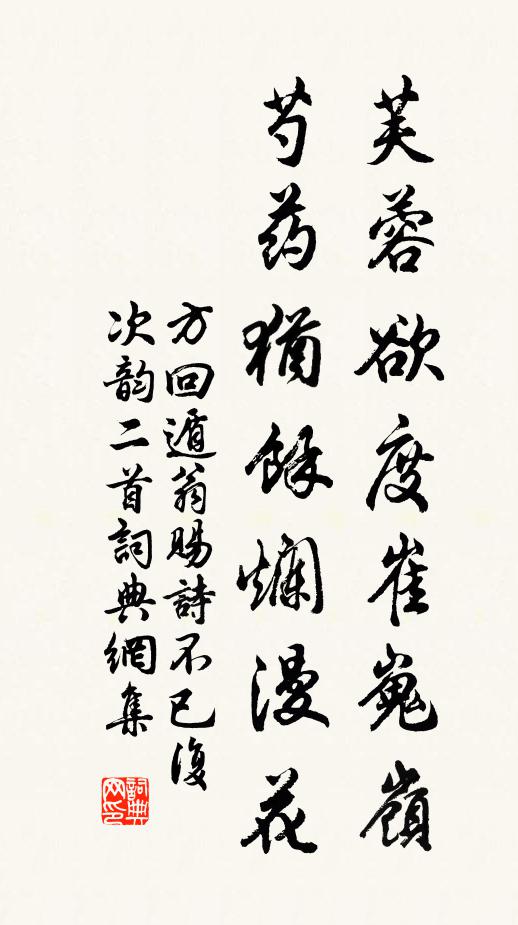 芙蓉欲度崔嵬嶺
芍药猶餘爛漫花
方回遁翁賜詩不已復
次韵二首詞典網集
詞典網印